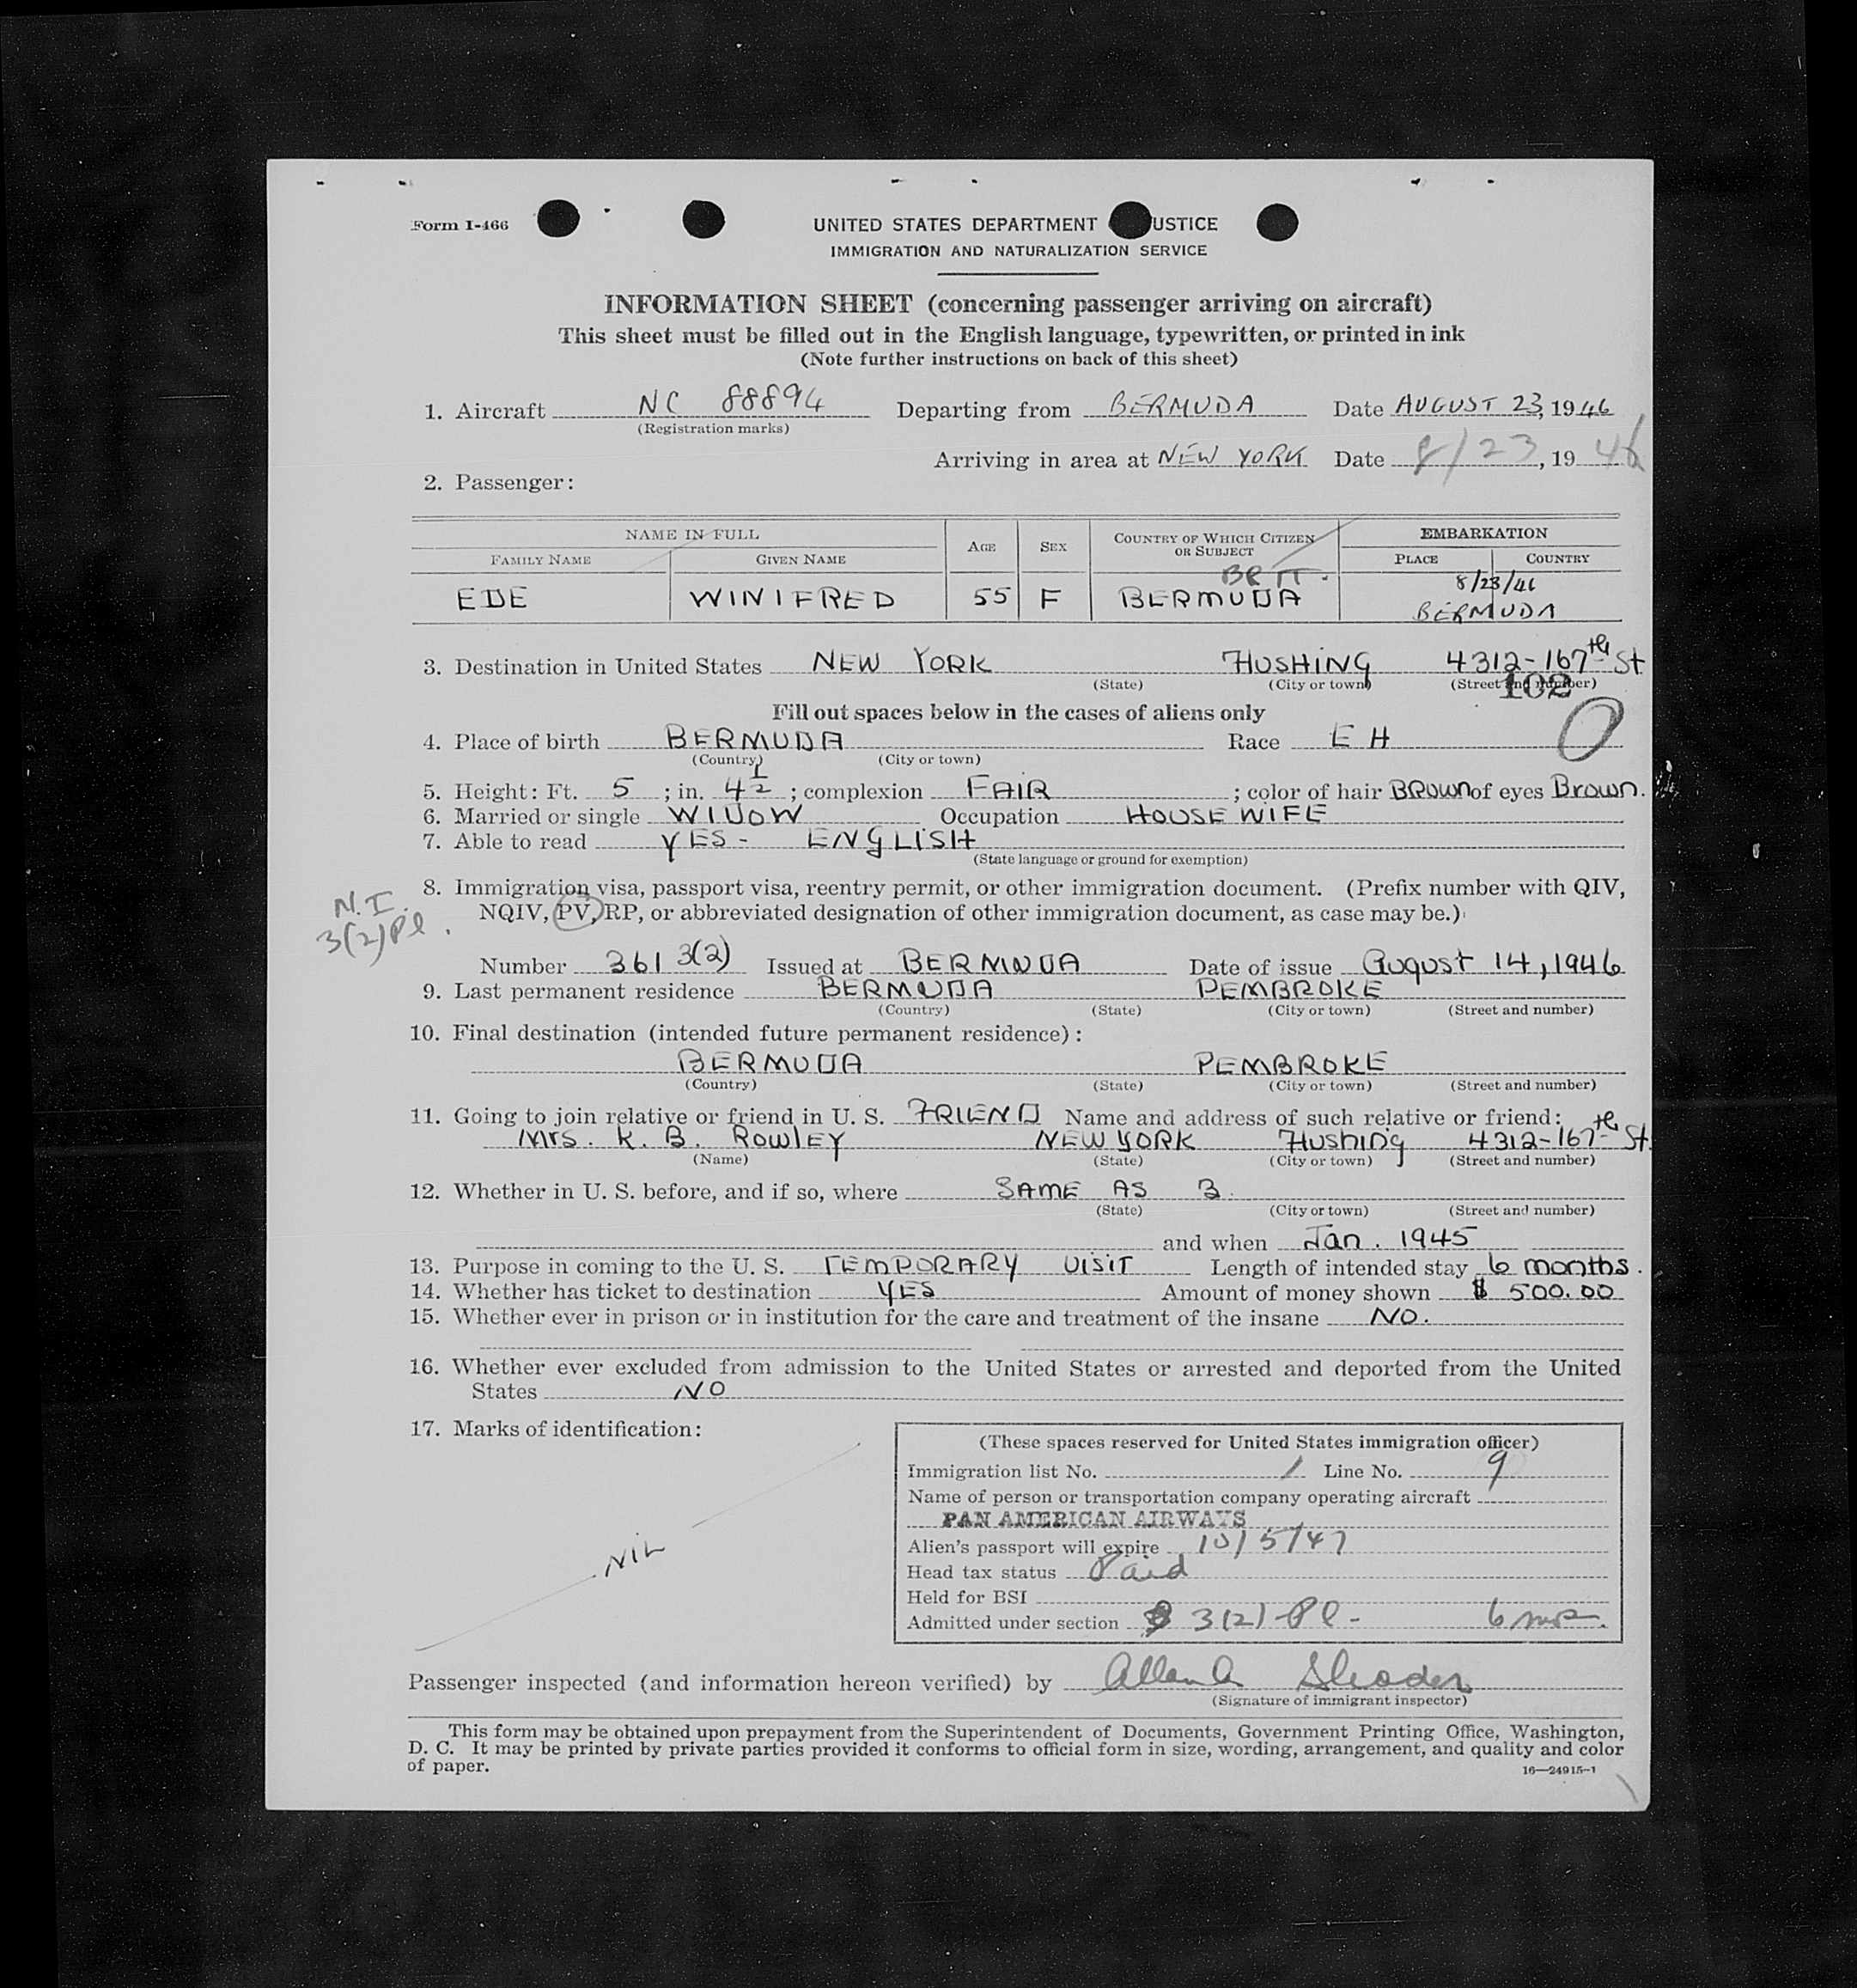 Form I-466
UNITED STATES DEPARTMENT USTICE
IMMIGRATION AND NATURALIZATION SERVICE
INFORMATION SHEET (concerning passenger arriving on aircraft)
This sheet must be filled out in the English language, typewritten, or printed in ink
(Note further instructions on back of this sheet)
1. Aircraft NC 88894 Departing from BERMUDA Date AUGUST 23, 1946
(Registration marks)
Arriving in area at NEW YORK Date 8/23, 19 46
2. Passenger:
NAME IN FULL AGE SEX COUNTRY OF WHICH CITIZEN OR SUBJECT EMBARKATION
FAMILY NAME GIVEN NAME PLACE COUNTRY
BRIT. 8/23/46
EDE WINIFRED 55 F BERMUDA BERMUDA
3. Destination in United States NEW YORK FLUSHING 4312-167th St
(State) (City or town) (Street and number)
102
Fill out spaces below in the cases of aliens only
4. Place of birth BERMUDA Race E H
(Country) (City or town)
5. Height: Ft. 5; in. 4 1/2; complexion FAIR; color of hair BROWN of eyes Brown.
6. Married or single WIDOW Occupation HOUSEWIFE
7. Able to read YES - ENGLISH
(State language or ground for exemption)
8. Immigration visa, passport visa, reentry permit, or other immigration document. (Prefix number with QIV,
NQIV, PV, RP, or abbreviated designation of other immigration document, as case may be.)
N.I.
3(2)Pl.
Number 361 3(2) Issued at BERMUDA Date of issue August 14, 1946
9. Last permanent residence BERMUDA PEMBROKE
(Country) (State) (City or town) (Street and number)
10. Final destination (intended future permanent residence):
BERMUDA PEMBROKE
(Country) (State) (City or town) (Street and number)
11. Going to join relative or friend in U. S. FRIEND Name and address of such relative or friend:
Mrs. K. B. ROWLEY NEW YORK Flushing 4312-167th St.
(Name) (State) (City or town) (Street and number)
12. Whether in U. S. before, and if so, where SAME AS 3.
(State) (City or town) (Street and number)
and when Jan. 1945
13. Purpose in coming to the U. S. TEMPORARY VISIT Length of intended stay 6 months.
14. Whether has ticket to destination YES Amount of money shown $ 500.00
15. Whether ever in prison or in institution for the care and treatment of the insane NO.
16. Whether ever excluded from admission to the United States or arrested and deported from the United
States NO
17. Marks of identification:
NIL
(These spaces reserved for United States immigration officer)
Immigration list No. 1 Line No. 9
Name of person or transportation company operating aircraft
PAN AMERICAN AIRWAYS
Alien's passport will expire 10/5/47
Head tax status Paid
Held for BSI
Admitted under section 3(2)-Pl- 6 mos.
Passenger inspected (and information hereon verified) by Allan A
(Signature of immigrant inspector)
This form may be obtained upon prepayment from the Superintendent of Documents, Government Printing Office, Washington,
D. C. It may be printed by private parties provided it conforms to official form in size, wording, arrangement, and quality and color
of paper.
16—24915-1